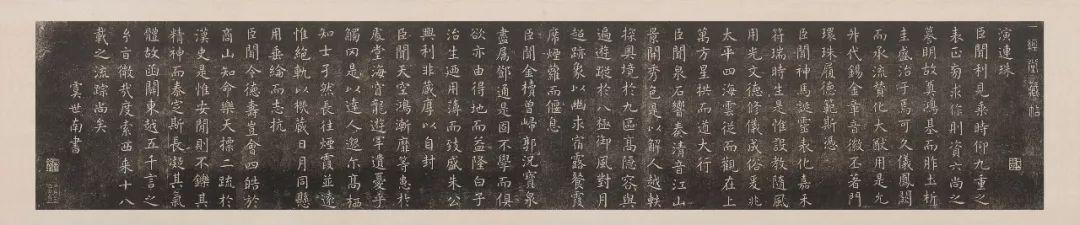 演連珠
臣聞利見乘時仰九重之
表正蒭求餘則資六尚之
明故鴻基而非土析
圭盛治馬可久儀鳳闕
而承流贊化大猷用是允
升代錫金章音徽丕著門
環珠履德範斯懋
臣聞神馬誕靈表化嘉禾
符瑞時生是惟設教隨風
用光文德修儀成俗爰兆
太平四海雲從而觀在上
萬方星拱而道大行
臣聞泉石響奏清音江山
景開秀色是以解人越軼
探奥境於九區髙隱容與
遁遊蹤於八極御風對月
超跡象以幽求宿露餐霞
席煙蘿而偃息
臣聞金積曽歸郭況寶泉
盡屬鄧通是固不學而俱
欲亦由得地而益隆白子
治生迺用薄而致盛朱公
興利非蔵厚以自封
臣聞天空鴻漸靡等惠於
處堂海育龍遊罕遺憂乎
觸罔是以達人邈尓髙栖
知士孑然長往煙霞並遠
惟絶軌以機蔵日月同懸
用垂綸而志抗
臣聞令德壽豈會四皓於
商山知命樂天標二疏於
漢史是惟安閒則不鑠其
精神而泰定斯長凝其氣
體故函關東越五千言之
度索西来十八
載之流踪尚矣
虞世南書